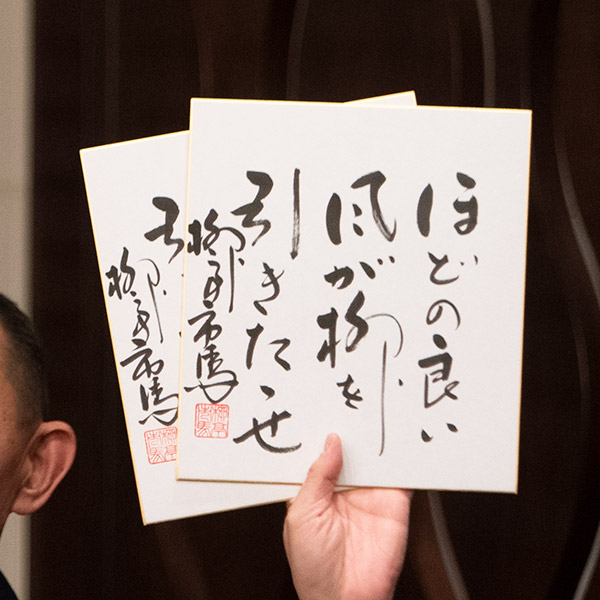 ほどの良い
風が柳を
引きたゝせ
柳亭市馬
引
柳亭市馬